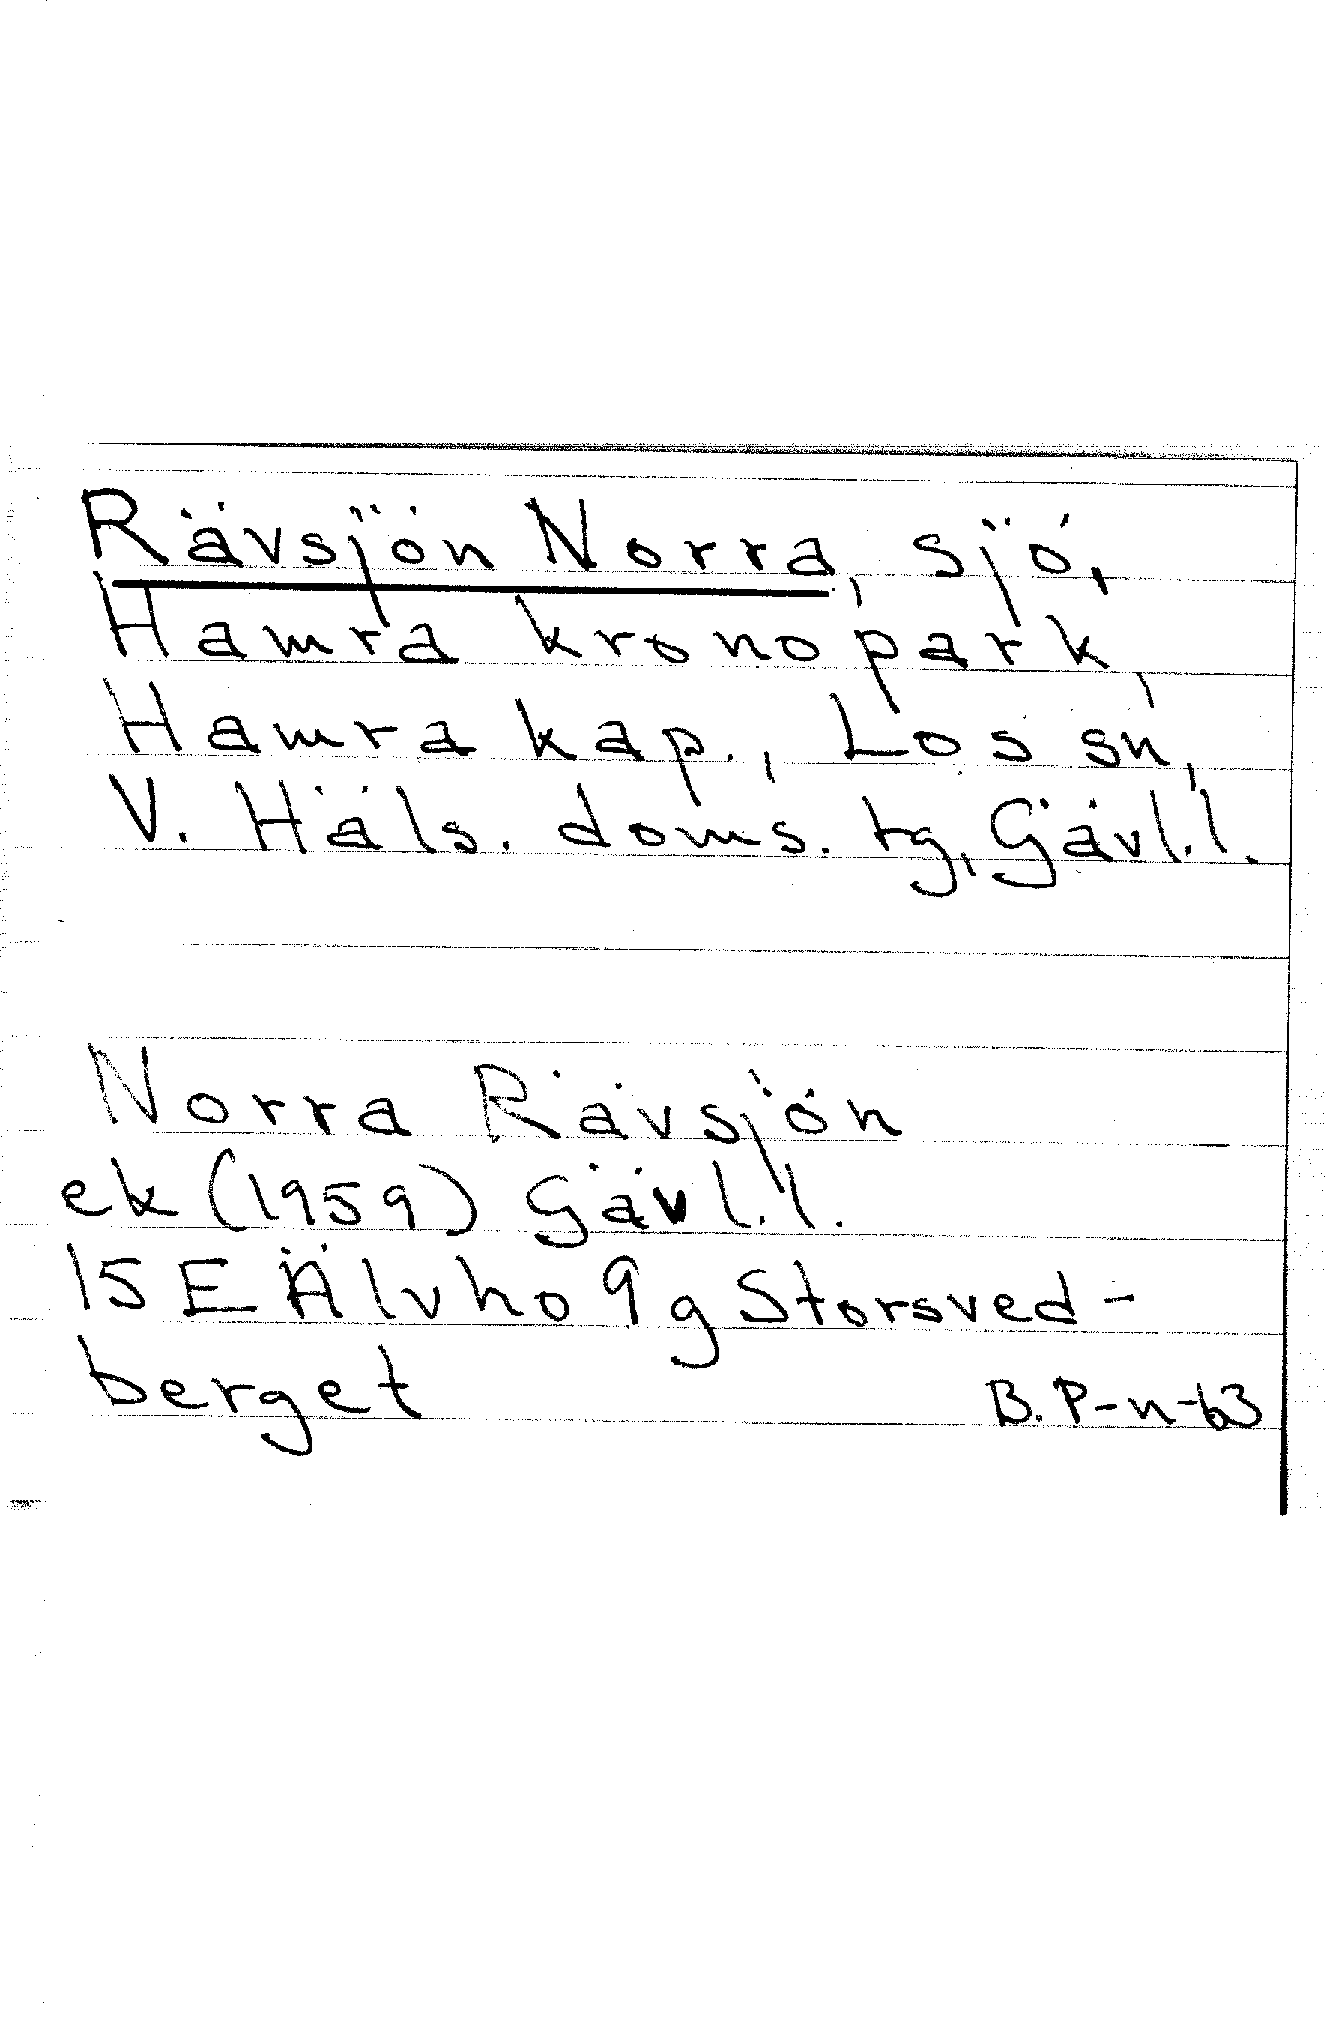 Rävsjön Norra, sjö,
Hamra kronopark,
Hamra kap., Los sn,
V. Häls. doms. tg, Gävl.l.
Norra Rävsjön
ek (1959) Gävl.l.
15 E Älvho 9 g Storsved-
berget B.P-n-63